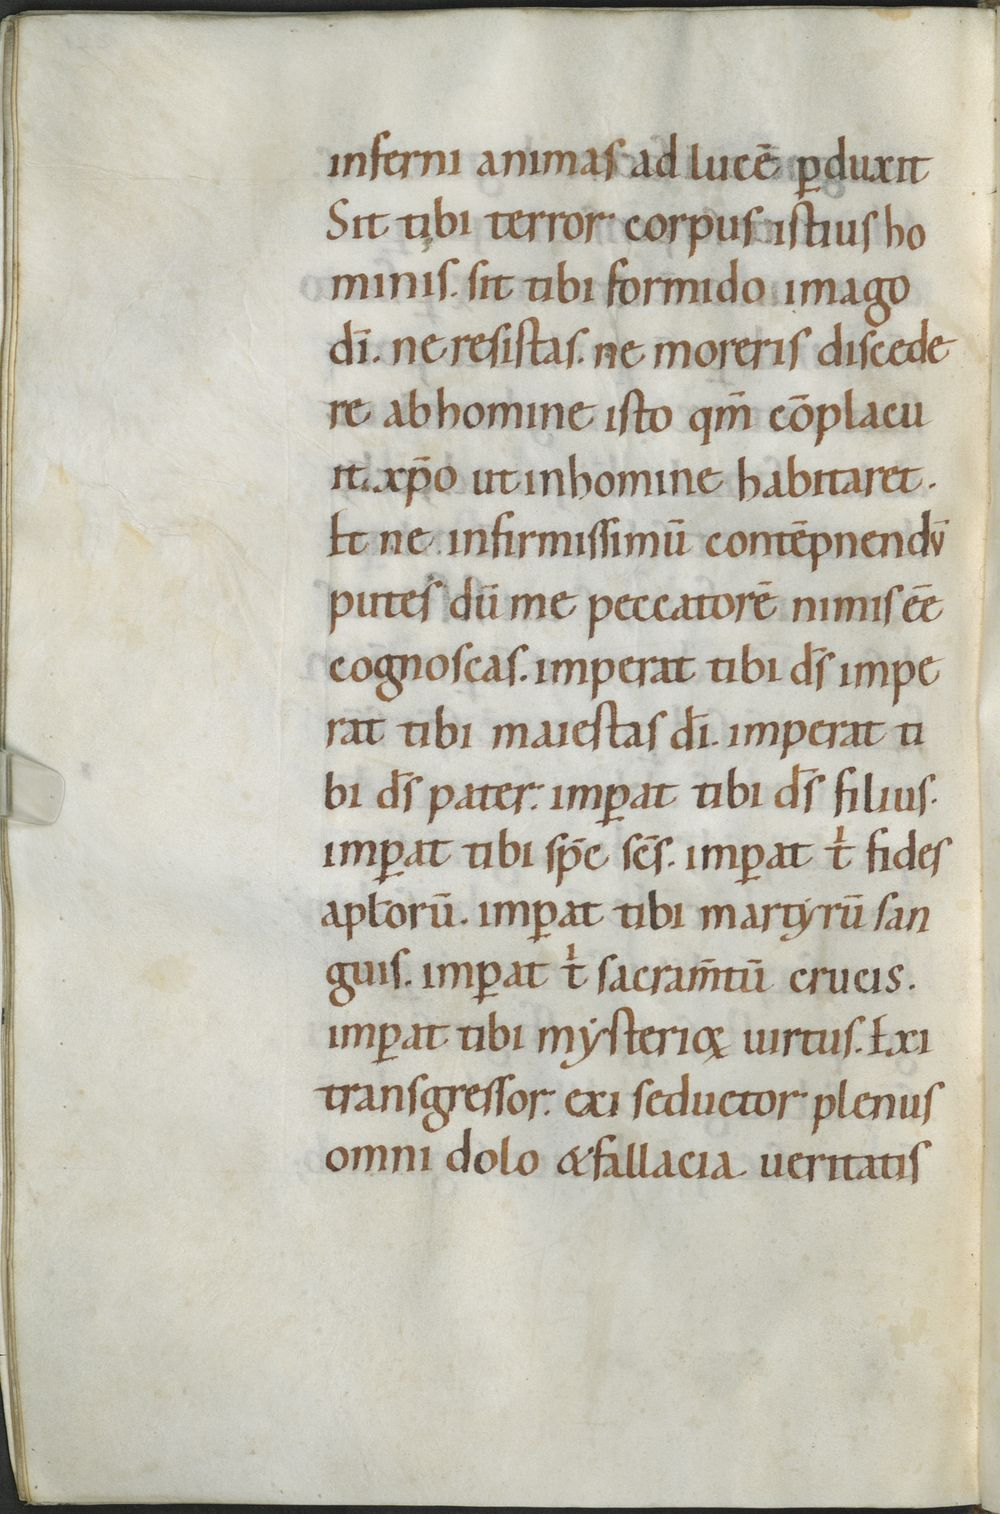 inferni animas ad lucē ꝑduxit
Sit tibi terror corpus istius ho
minis. sit tibi formido imago
dī. ne resistas. ne moreris discede
re ab homine isto qm̄ cōplacu
it. xp̄o ut in homine habitaret.
Et ne infirmissimū contēpnendū
putes dū me peccatorē nimis eē
cognoscas. imperat tibi ds̄ impe
rat tibi maiestas dī. imperat ti
bi ds̄ pater. imꝑat tibi ds̄ filius.
imꝑat tibi sp̄c sc̄s. imꝑat tͥ fides
apƚorū. imꝑat tibi martyrū san
guis. imꝑat tͥ sacram̄tū crucis.
imꝑat tibi mysterioꝝ uirtus. Exi
transgressor. exi seductor plenus
omni dolo & fallacia ueritatis